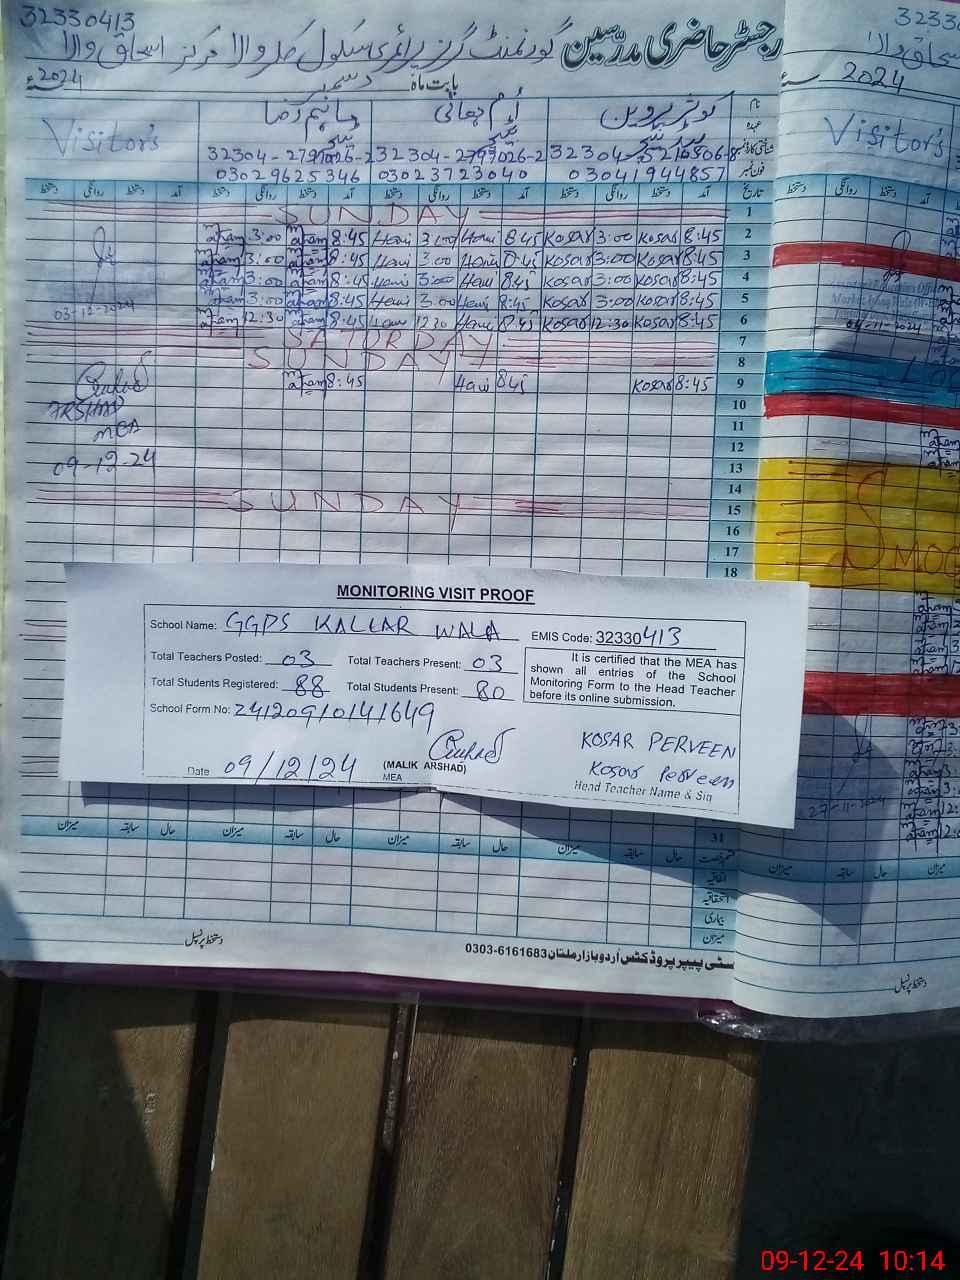 32330413
رجسٹر حاضری مدرسین گورنمنٹ گرلز پرائمری سکول کلر والا مرکز اسحاق والا
بابت ماہ دسمبر 2024ء
2024
Visitor's
نام کوثر پروین
عہدہ
شناختی کارڈ نمبر
فون نمبر
32304-2797026-2 32304-2797026-2 32304-5216506-8
03029625346 03023723040 03041944857
دستخط روانگی دستخط آمد دستخط روانگی دستخط آمد دستخط روانگی دستخط آمد دستخط روانگی دستخط آمد تاریخ
SUNDAY 1
maham 3:00 maham 8:45 Hani 3:00 Hani 8:45 Kosar 3:00 Kosar 8:45 2
maham 3:00 maham 8:45 Hani 3:00 Hani 8:45 Kosar 3:00 Kosar 8:45 3
maham 3:00 maham 8:45 Hani 3:00 Hani 8:45 Kosar 3:00 Kosar 8:45 4
maham 3:00 maham 8:45 Hani 3:00 Hani 8:45 Kosar 3:00 Kosar 8:45 5
03-12-2024 maham 12:30 maham 8:45 Hani 12:30 Hani 8:45 Kosar 12:30 Kosar 8:45 6
SATURDAY 7
SUNDAY 8
maham 8:45 Hani 8:45 Kosar 8:45 9
ARSHAD 10
MEA 11
12
09-12-24 13
14
SUNDAY 15
16
17
18
Visitor's
27-11-2024
MONITORING VISIT PROOF
School Name: GGPS KALLAR WALA EMIS Code: 32330413
Total Teachers Posted: 03 Total Teachers Present: 03
Total Students Registered: 88 Total Students Present: 80
It is certified that the MEA has shown all entries of the School Monitoring Form to the Head Teacher before its online submission.
School Form No: 24120910141649
Date 09/12/24
(MALIK ARSHAD)
MEA
KOSAR PERVEEN
Kosar Perveen
Head Teacher Name & Sig
31
میزان سابقہ حال میزان سابقہ حال میزان سابقہ حال میزان سابقہ حال
اتفاقیہ
استحقاقیہ
بیماری
میزان
دستخط پرنسپل
سٹی پیپر پروڈکٹس اُردو بازار ملتان 0303-6161683
دستخط پرنسپل
09-12-24 10:14